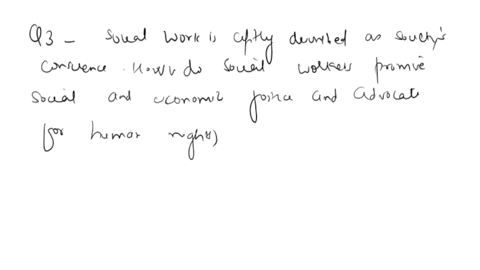 Q3 - Social work is aptly described as society's
conscience. How do social workers promote
social and economic justice and advocate
for human rights)